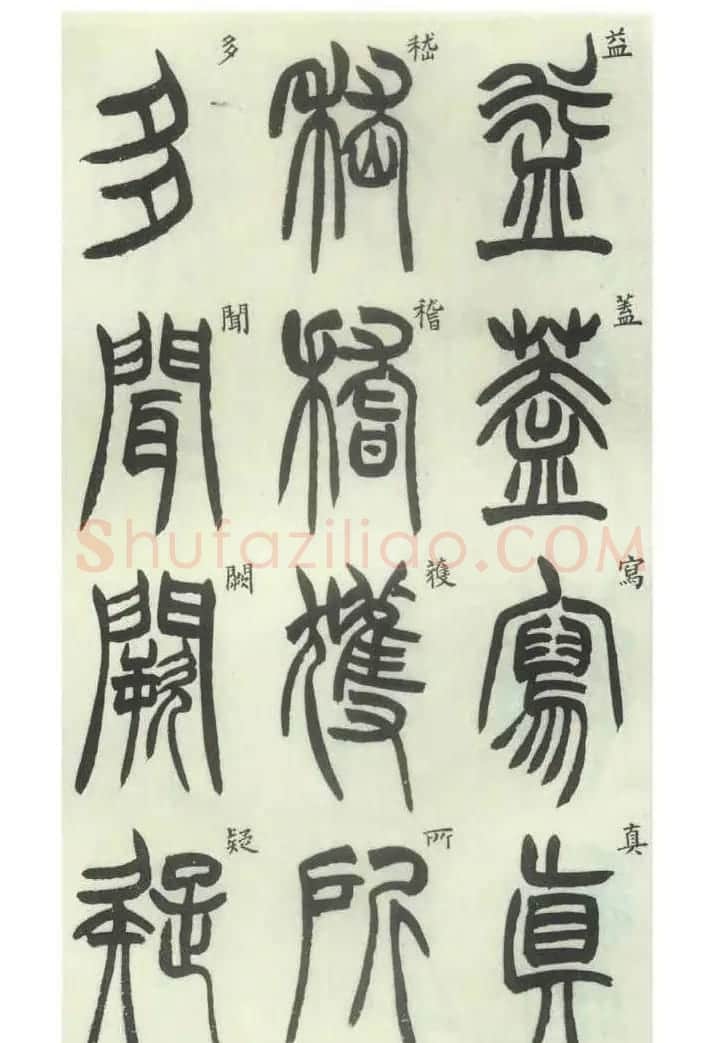 益蓋寫真
嵇稽蒦所
多聞闕疑
Shufaziliao.COM